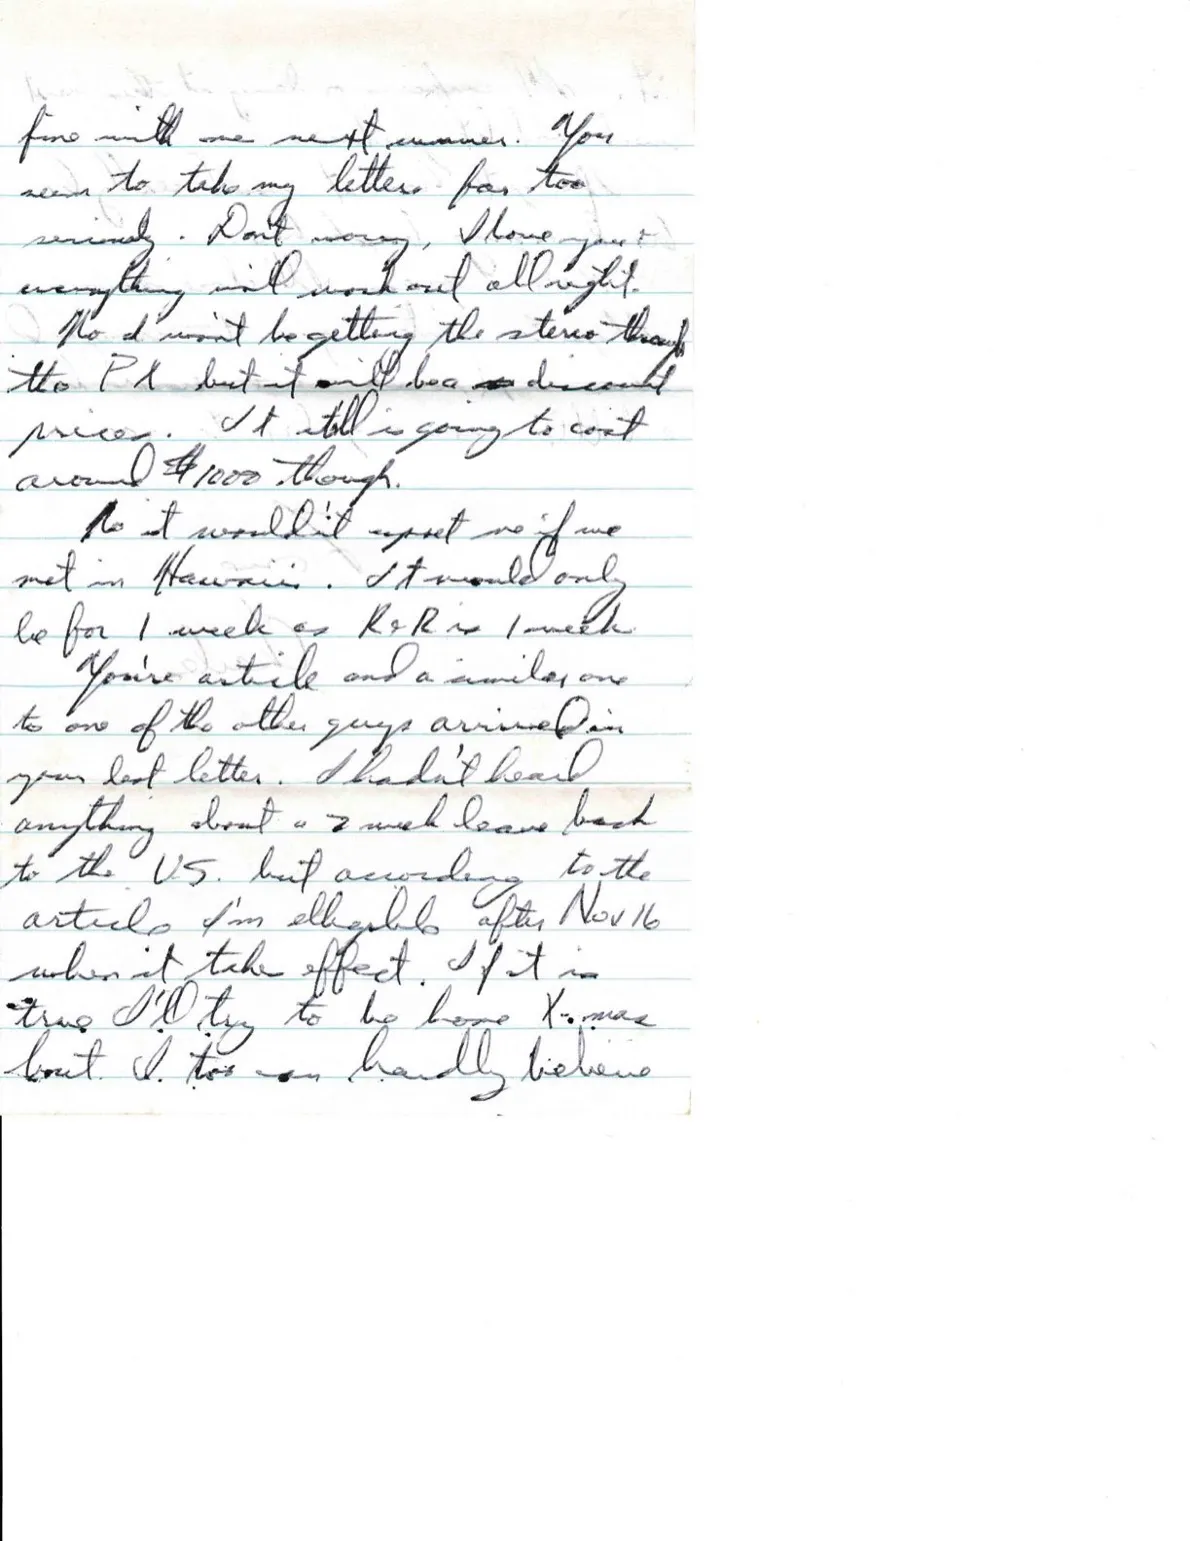 fine with me next summer. You
seem to take my letters far too
seriously. Don't worry, I love you &
everything will work out all right.
No I won't be getting the stereo through
the PX but it will be a discount
prices. It still is going to cost
around $1000 though.
No it wouldn't upset me if we
met in Hawaii. It would only
be for 1 week as R&R is 1 week
You're article and a similar one
to one of the other guys arrived in
your last letter. I hadn't heard
anything about a 2 week leave back
to the U.S. but according to the
article I'm elligible after Nov 16
when it take effect. If it is
true I'll try to be home X-mas
but I too can hardly believe